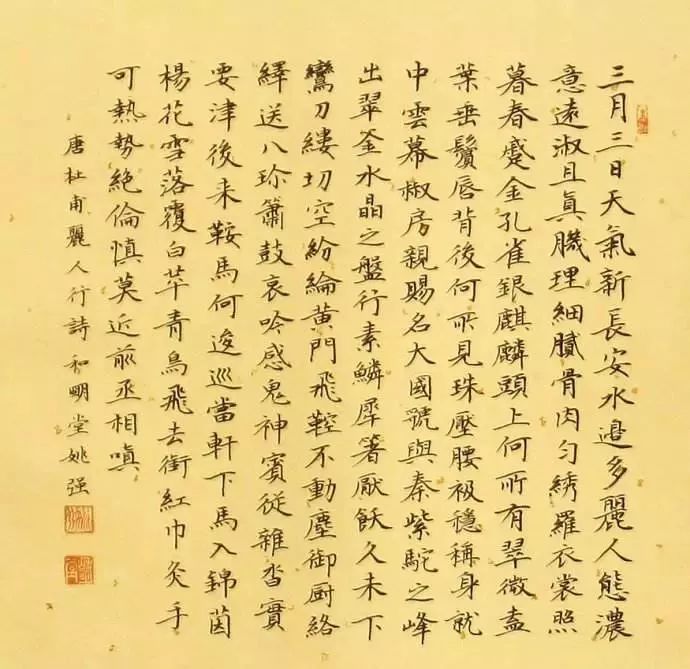 三月三日天氣新長安水邉多麗人態濃
意遠淑且真肌理細膩骨肉勻綉羅衣裳照
暮春蹙金孔雀銀麒麟頭上何所有翠微盍
葉垂鬢唇背後何所見珠壓腰衱穩稱身就
中雲幕椒房親賜名大國虢與秦紫駝之峰
出翠釜水晶之盤行素鱗犀箸厭飫久未下
鸞刀縷切空紛綸黄門飛鞚不動塵御厨絡
繹送八珍簫鼓哀吟感鬼神賓從雜沓實
要津後来鞍馬何逡巡當軒下馬入錦茵
楊花雪落覆白苹青鳥飛去銜紅巾炙手
可熱勢絶倫慎莫近前丞相嗔
唐杜甫麗人行詩和堂姚强